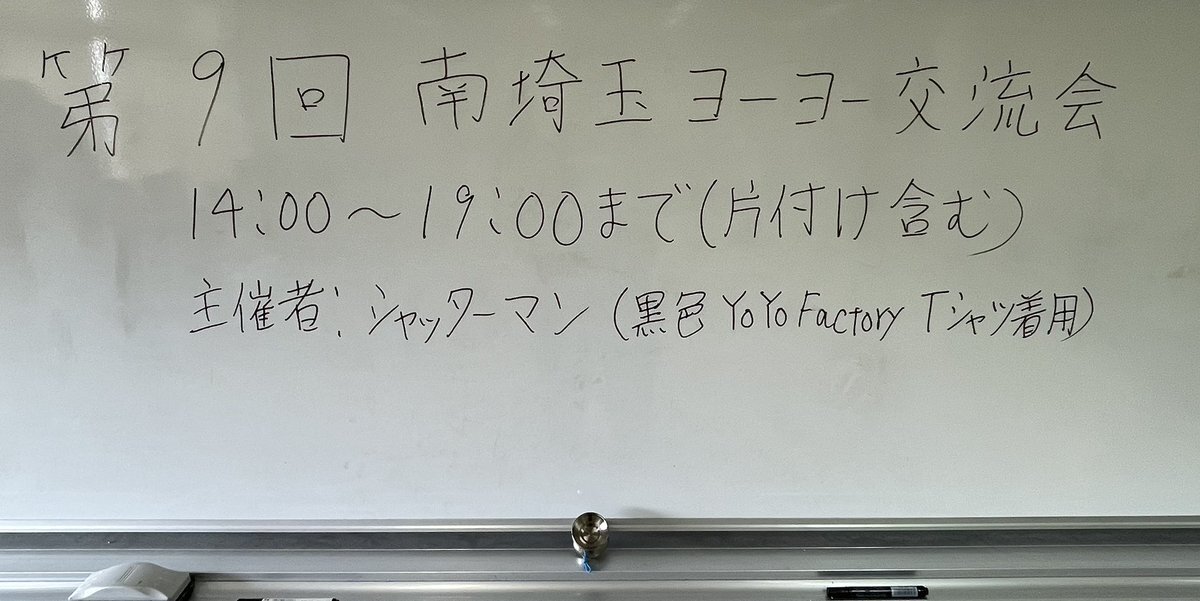 第9回 南埼玉ヨーヨー交流会
14:00～19:00まで(片付け含む)
主催者: シャッターマン (黒色 YoYoFactory Tシャツ着用)